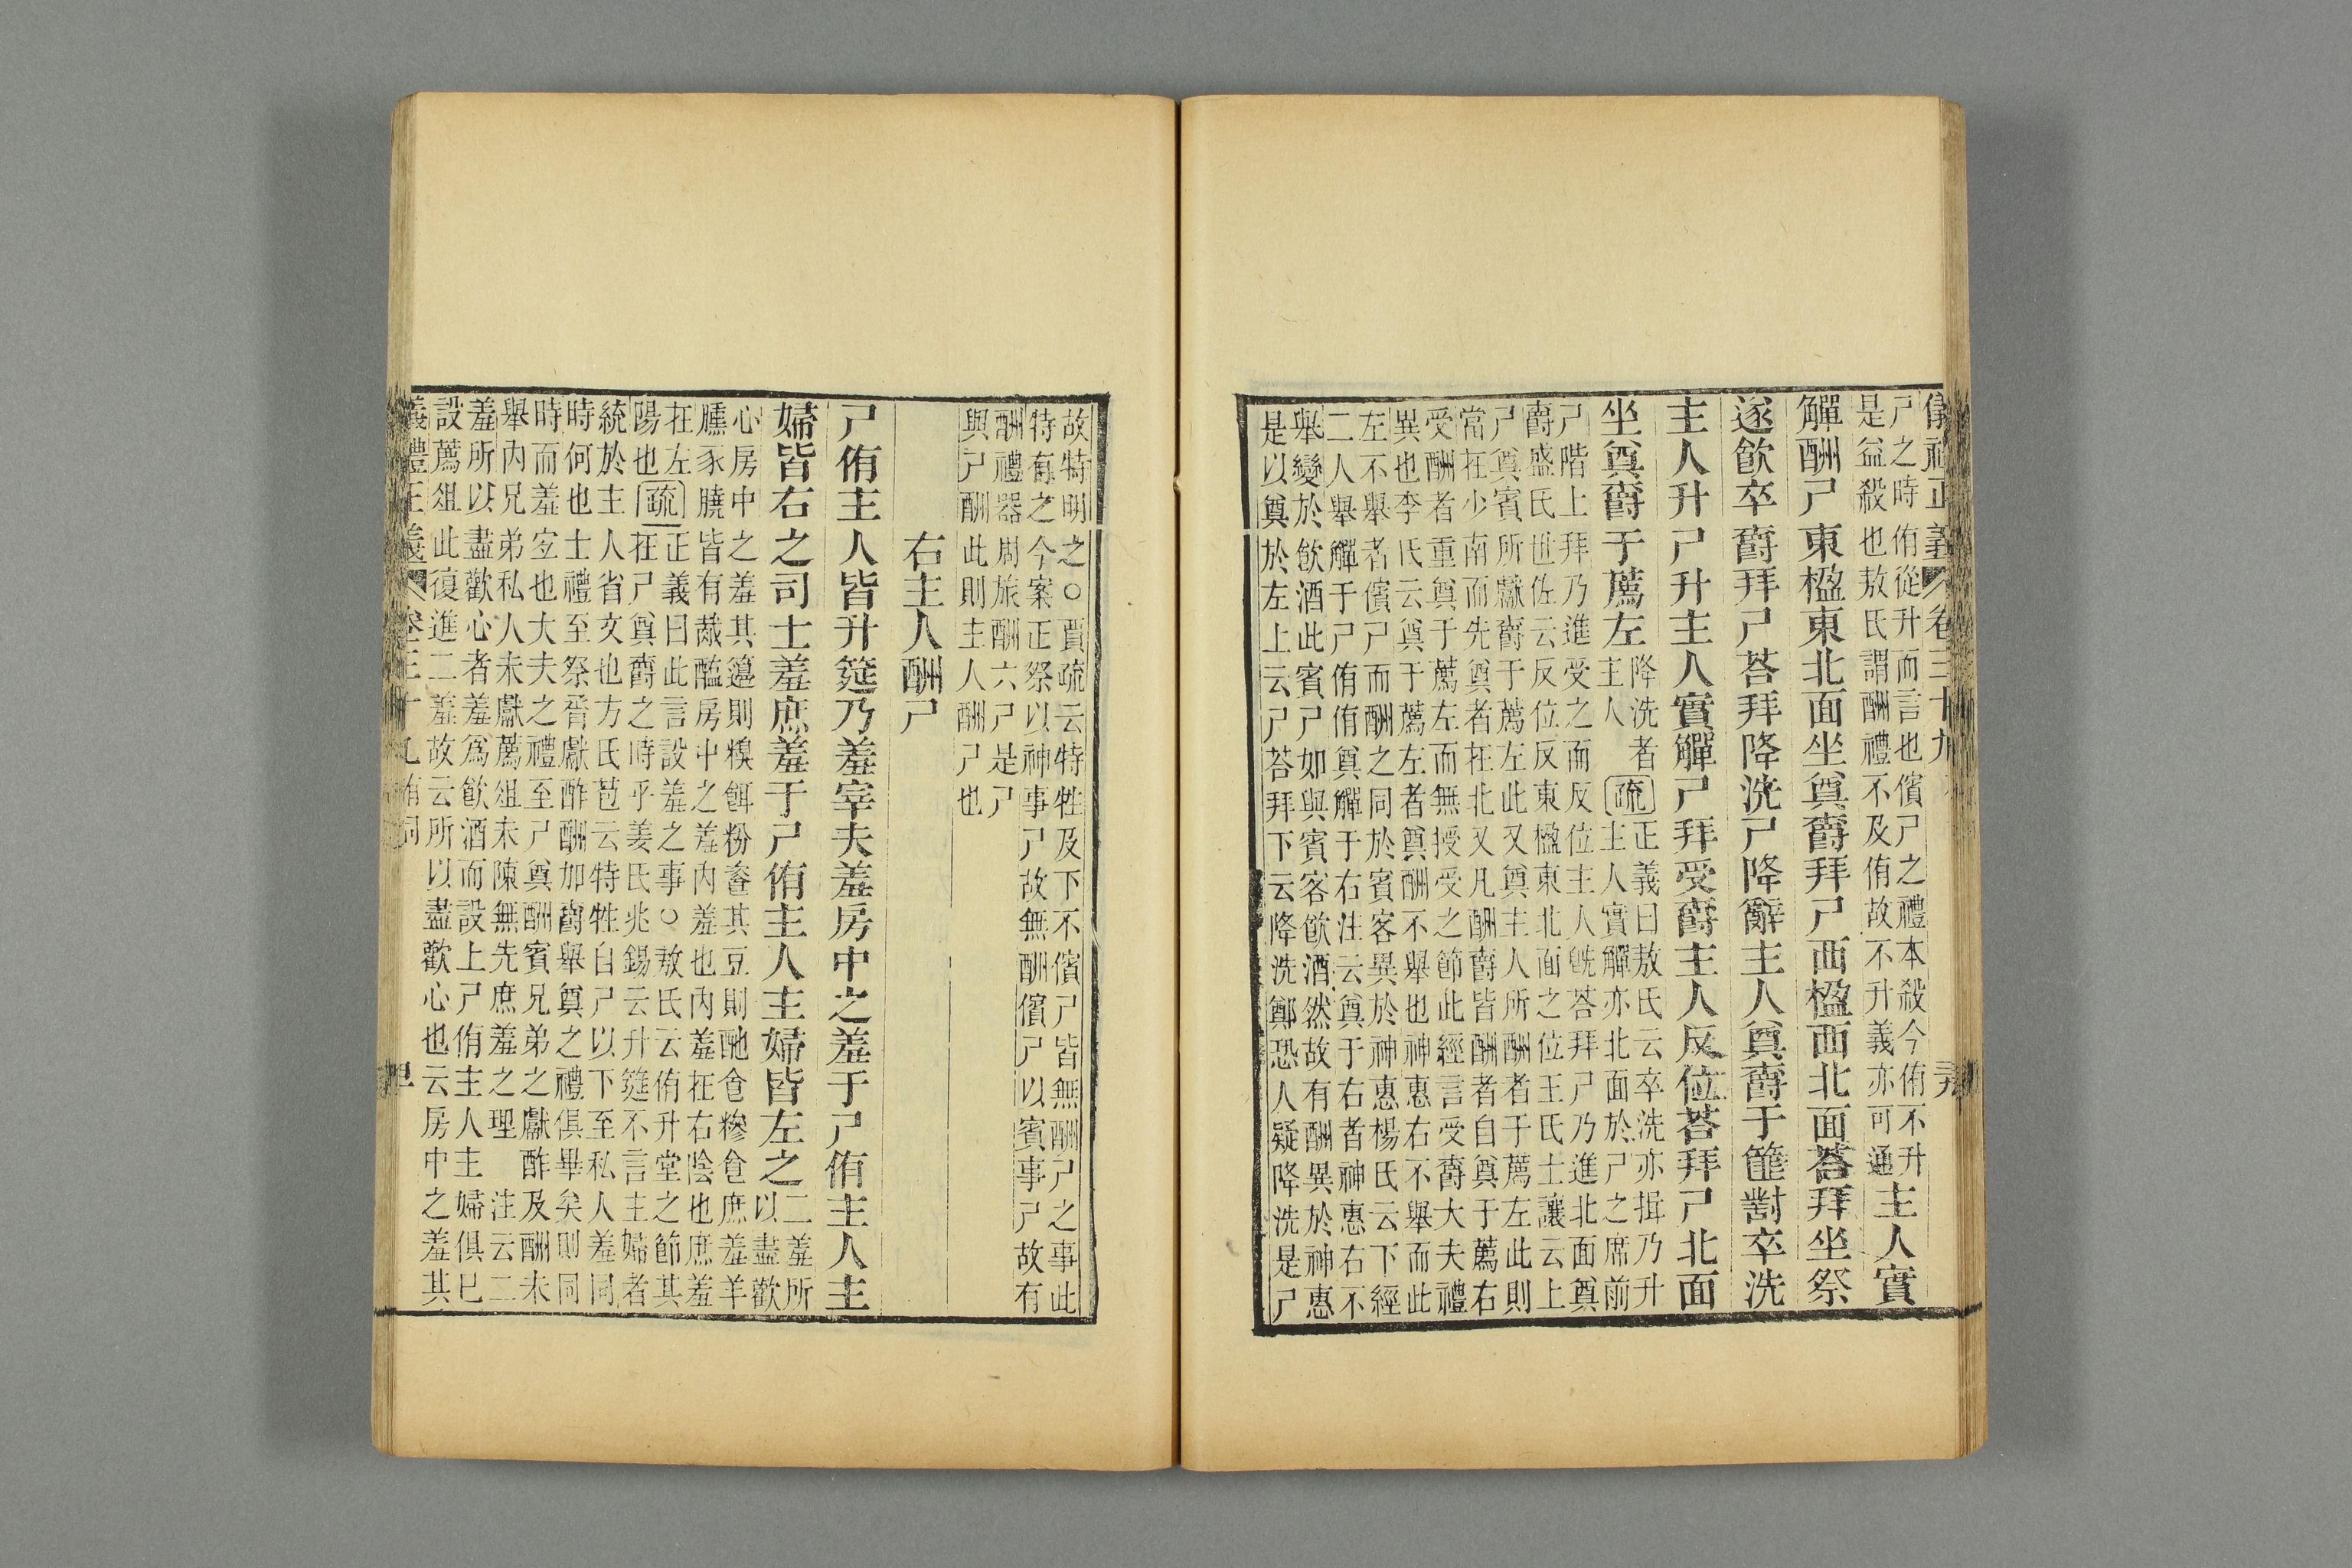 儀禮正義 卷三十九
尸之時侑從升而言也儐尸之禮本殺今侑不升
是益殺也敖氏謂酬禮不及侑故不升義亦可通
主人實
觶酬尸東楹東北面坐奠爵拜尸西楹西北面荅拜坐祭
遂飲卒爵拜尸荅拜降洗尸降辭主人奠爵于篚對卒洗
主人升尸升主人實觶尸拜受爵主人反位荅拜尸北面
坐奠爵于薦左
降洗者
主人
疏
正義曰敖氏云卒洗亦揖乃升
主人實觶亦北面於尸之席前
尸階上拜乃進受之而反位主人旣荅拜尸乃進北面奠
爵盛氏世佐云反位反東楹東北面之位王氏士讓云上
尸奠賓所獻爵于薦左此又奠主人所酬者于薦左此則
當在少南而先奠者在北又凡酬爵皆酬者自奠于薦右
受酬者重奠于薦左而無授受之節此經言受爵大夫禮
異也李氏云奠于薦左者奠酬不舉也神惠右不舉而此
左不舉者儐尸而酬之同於賓客異於神惠楊氏云下經
二人舉觶于尸侑侑奠觶于右注云奠于右者神惠右不
舉變於飲酒此賓尸如與賓客飲酒然故有酬異於神惠
是以奠於左上云尸荅拜下云降洗鄭恐人疑降洗是尸
故特明之○賈疏云特牲及下不儐尸皆無酬尸之事此
特有之今案正祭以神事尸故無酬儐尸以賓事尸故有
酬禮器周旅酬六尸是尸
與尸酬此則主人酬尸也
右主人酬尸
尸侑主人皆升筵乃羞宰夫羞房中之羞于尸侑主人主
婦皆右之司士羞庶羞于尸侑主人主婦皆左之
二羞所
以盡歡
心房中之羞其籩則糗餌粉餈其豆則酏食糝食庶羞羊
臐豕膮皆有胾醢房中之羞內羞也內羞在右陰也庶羞
在左
陽也
疏
正義曰此言設羞之事○敖氏云侑升堂之節其
在尸奠爵之時乎姜氏兆錫云升筵不言主婦者
統於主人省文也方氏苞云特牲自尸以下至私人羞同
時何也士禮至祭脀獻酢酬加爵舉奠之禮俱畢矣則同
時而羞宜也大夫之禮至尸奠酬賓兄弟之獻酢及酬未
舉內兄弟私人未獻薦俎未陳無先庶羞之理 注云二
羞所以盡歡心者羞爲飲酒而設上尸侑主人主婦俱已
設薦俎此復進二羞故云所以盡歡心也云房中之羞其